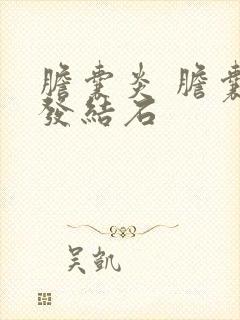 膽囊炎 膽囊
發結石
吴凱